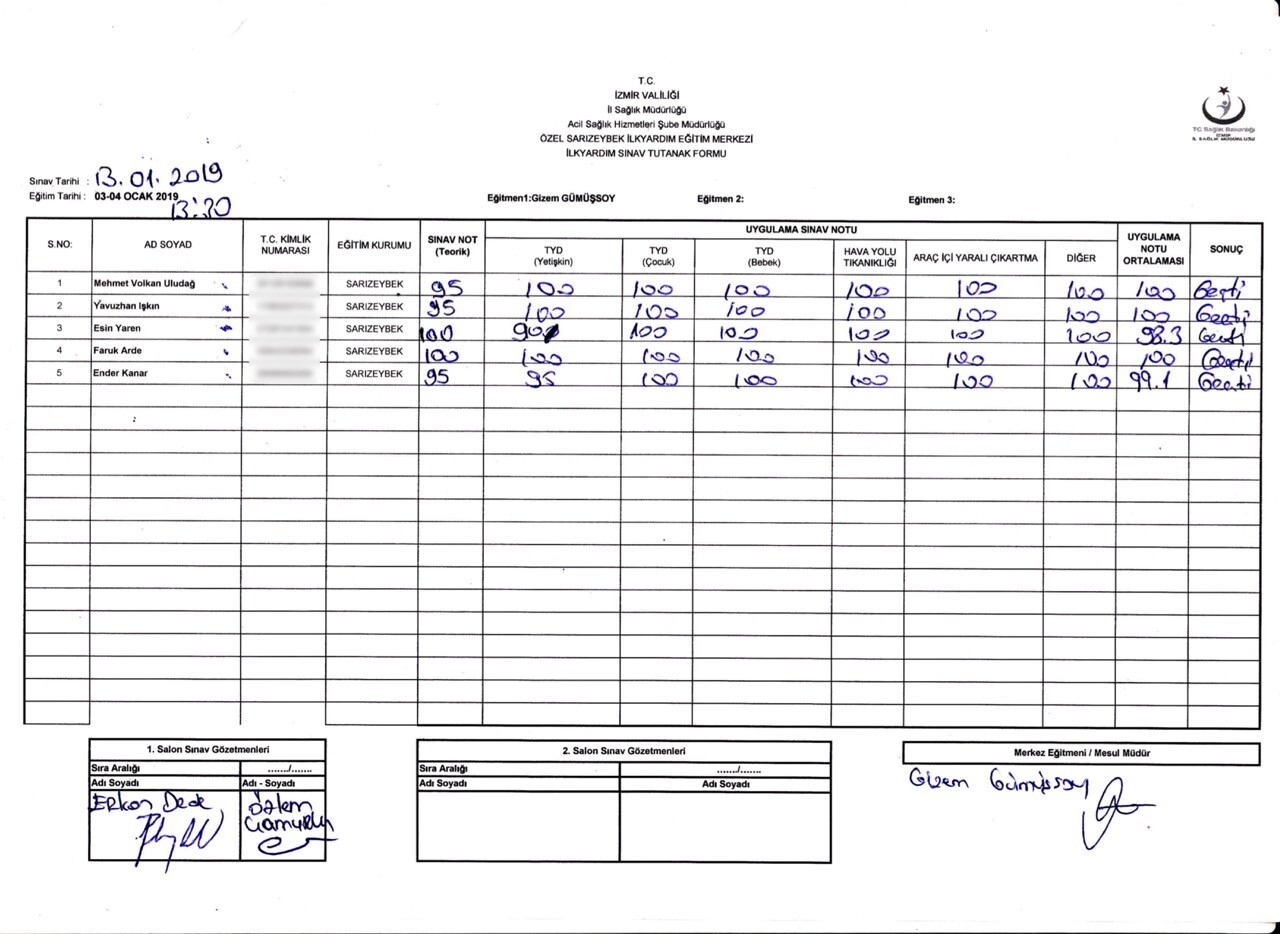 T.C.
İZMİR VALİLİĞİ
İl Sağlık Müdürlüğü
Acil Sağlık Hizmetleri Şube Müdürlüğü
ÖZEL SARIZEYBEK İLKYARDIM EĞİTİM MERKEZİ
İLKYARDIM SINAV TUTANAK FORMU
T.C. Sağlık Bakanlığı
İZMİR
İL SAĞLIK MÜDÜRLÜĞÜ
Sınav Tarihi : 13.01.2019
Eğitim Tarihi : 03-04 OCAK 2019
13:30
Eğitmen1:Gizem GÜMÜŞSOY Eğitmen 2: Eğitmen 3:
S.NO: AD SOYAD T.C. KİMLİK NUMARASI EĞİTİM KURUMU SINAV NOT (Teorik) UYGULAMA SINAV NOTU UYGULAMA NOTU ORTALAMASI SONUÇ
TYD (Yetişkin) TYD (Çocuk) TYD (Bebek) HAVA YOLU TIKANIKLIĞI ARAÇ İÇİ YARALI ÇIKARTMA DİĞER
1 Mehmet Volkan Uludağ SARIZEYBEK 95 100 100 100 100 100 100 100 Geçti
2 Yavuzhan Işkın SARIZEYBEK 95 100 100 100 100 100 100 100 Geçti
3 Esin Yaren SARIZEYBEK 100 90 100 100 100 100 100 98.3 Geçti
4 Faruk Arde SARIZEYBEK 100 100 100 100 100 100 100 100 Geçti
5 Ender Kanar SARIZEYBEK 95 95 100 100 100 100 100 99.1 Geçti
1. Salon Sınav Gözetmenleri
Sıra Aralığı ....../.......
Adı Soyadı Adı - Soyadı
Erkan Dede Özlem
2. Salon Sınav Gözetmenleri
Sıra Aralığı ....../.......
Adı Soyadı Adı Soyadı
Merkez Eğitmeni / Mesul Müdür
Gizem Gümüşsoy